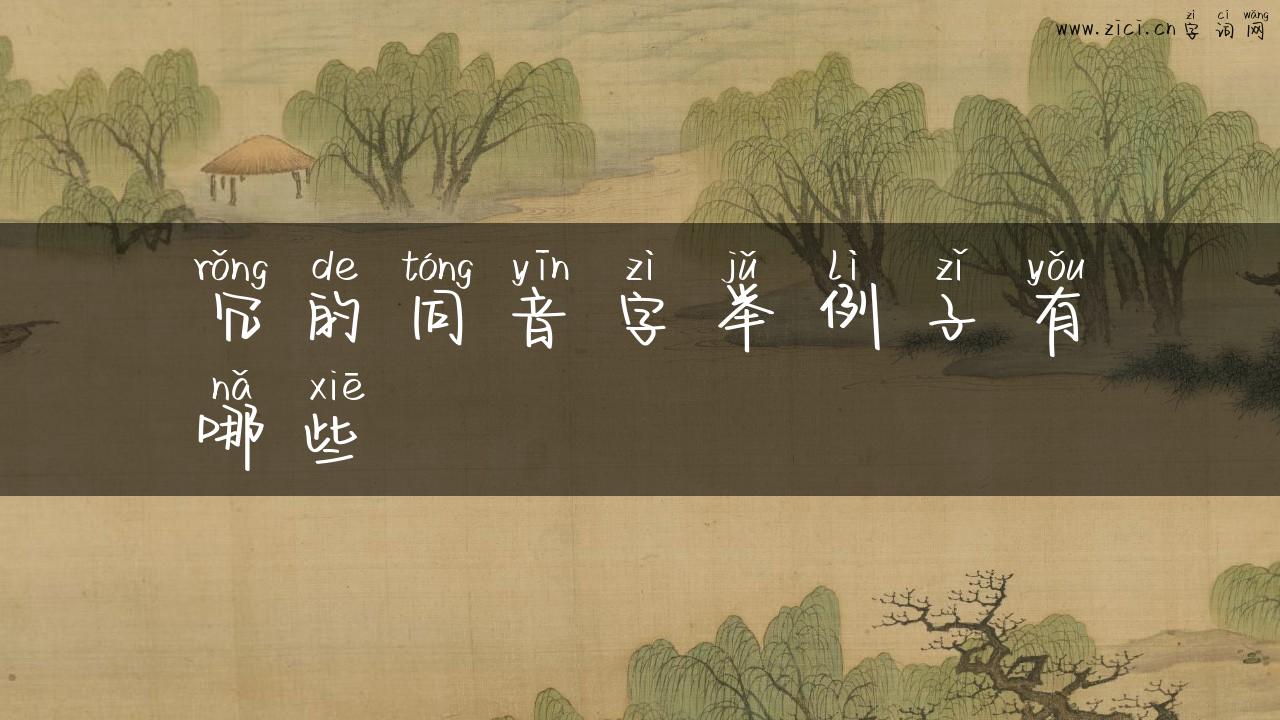 zì cí wǎng
www.zici.cn 字 词 网
rǒng de tóng yīn zì jǔ lì zǐ yǒu
冗 的 同 音 字 举 例 子 有
nǎ xiē
哪 些